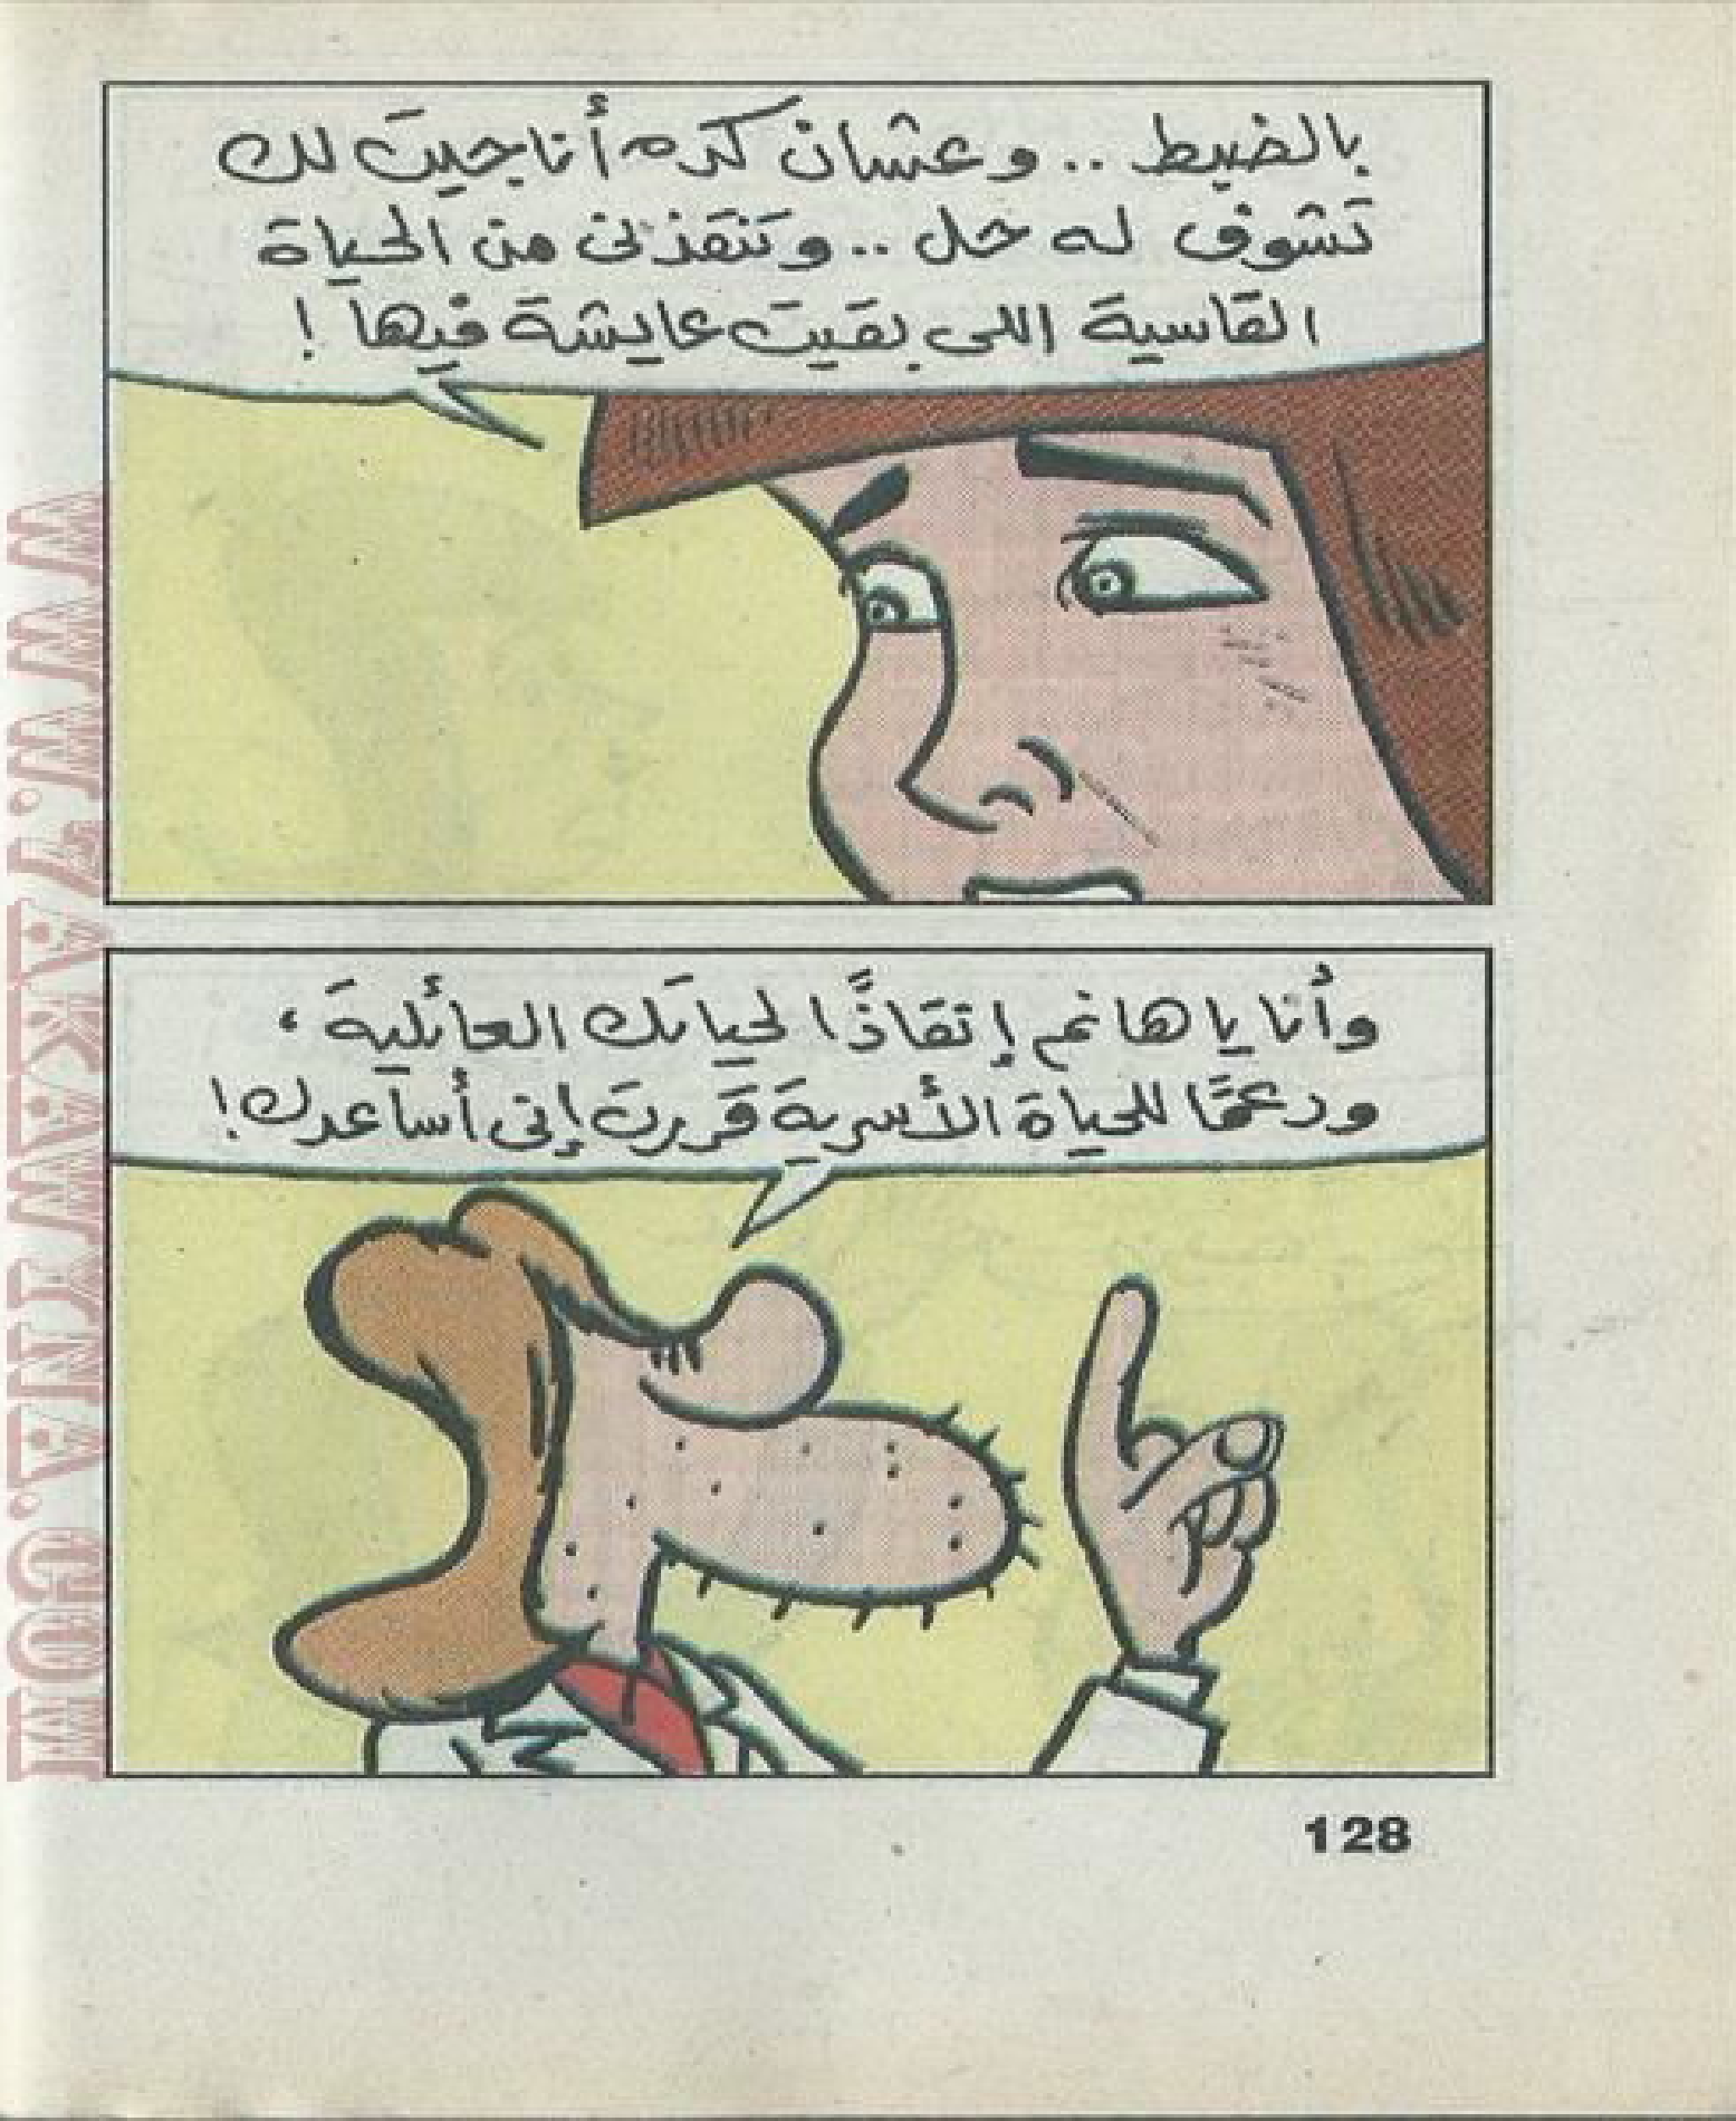 بالضبط .. وعشان كده أنا جيت لك
تشوف له حل .. وتنقذنى من الحياة
القاسية اللى بقيت عايشة فيها !
وأنا يا هانم إنقاذًا لحياتك العائلية ،
ودعمًا للحياة الأسرية قررت إنى أساعدك !
128
WWW.7AKAWENA.COM